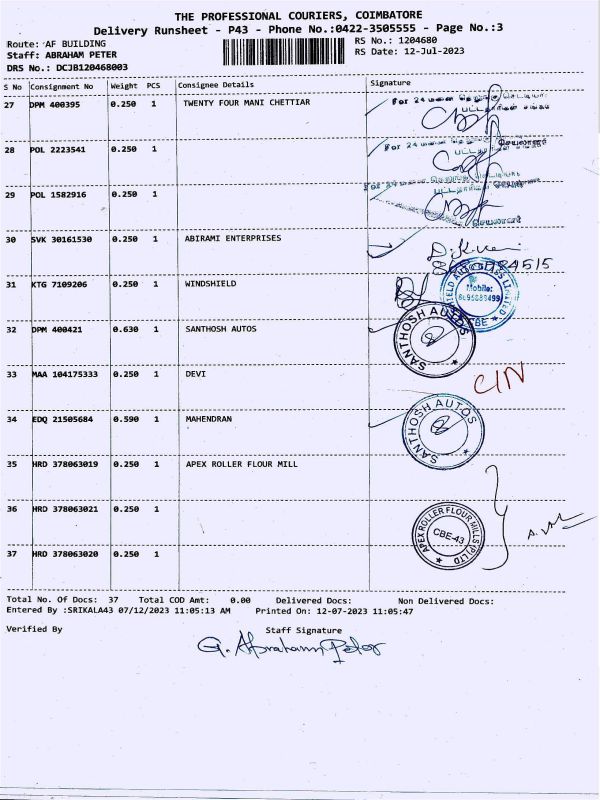 THE PROFESSIONAL COURIERS, COIMBATORE
Delivery Runsheet - P43 - Phone No.:0422-3505555 - Page No.:3
Route: AF BUILDING
RS No.: 1204680
Staff: ABRAHAM PETER
RS Date: 12-Jul-2023
DRS No.: DCJB120468003
S No Consignment No Weight PCS Consignee Details Signature
27 DPM 400395 0.250 1 TWENTY FOUR MANI CHETTIAR
28 POL 2223541 0.250 1
29 POL 1582916 0.250 1
30 SVK 30161530 0.250 1 ABIRAMI ENTERPRISES
31 KTG 7109206 0.250 1 WINDSHIELD
Mobile:
CBE
32 DPM 400421 0.630 1 SANTHOSH AUTOS
SANTHOSH AUTOS
33 MAA 104175333 0.250 1 DEVI
C/N
34 EDQ 21505684 0.590 1 MAHENDRAN
SANTHOSH AUTOS
35 HRD 378063019 0.250 1 APEX ROLLER FLOUR MILL
36 HRD 378063021 0.250 1
APEX ROLLER FLOUR MILLS (P) LTD
CBE-43
37 HRD 378063020 0.250 1
Total No. Of Docs: 37 Total COD Amt: 0.00 Delivered Docs: Non Delivered Docs:
Entered By :SRIKALA43 07/12/2023 11:05:13 AM Printed On: 12-07-2023 11:05:47
Verified By Staff Signature
G. Abraham Peter